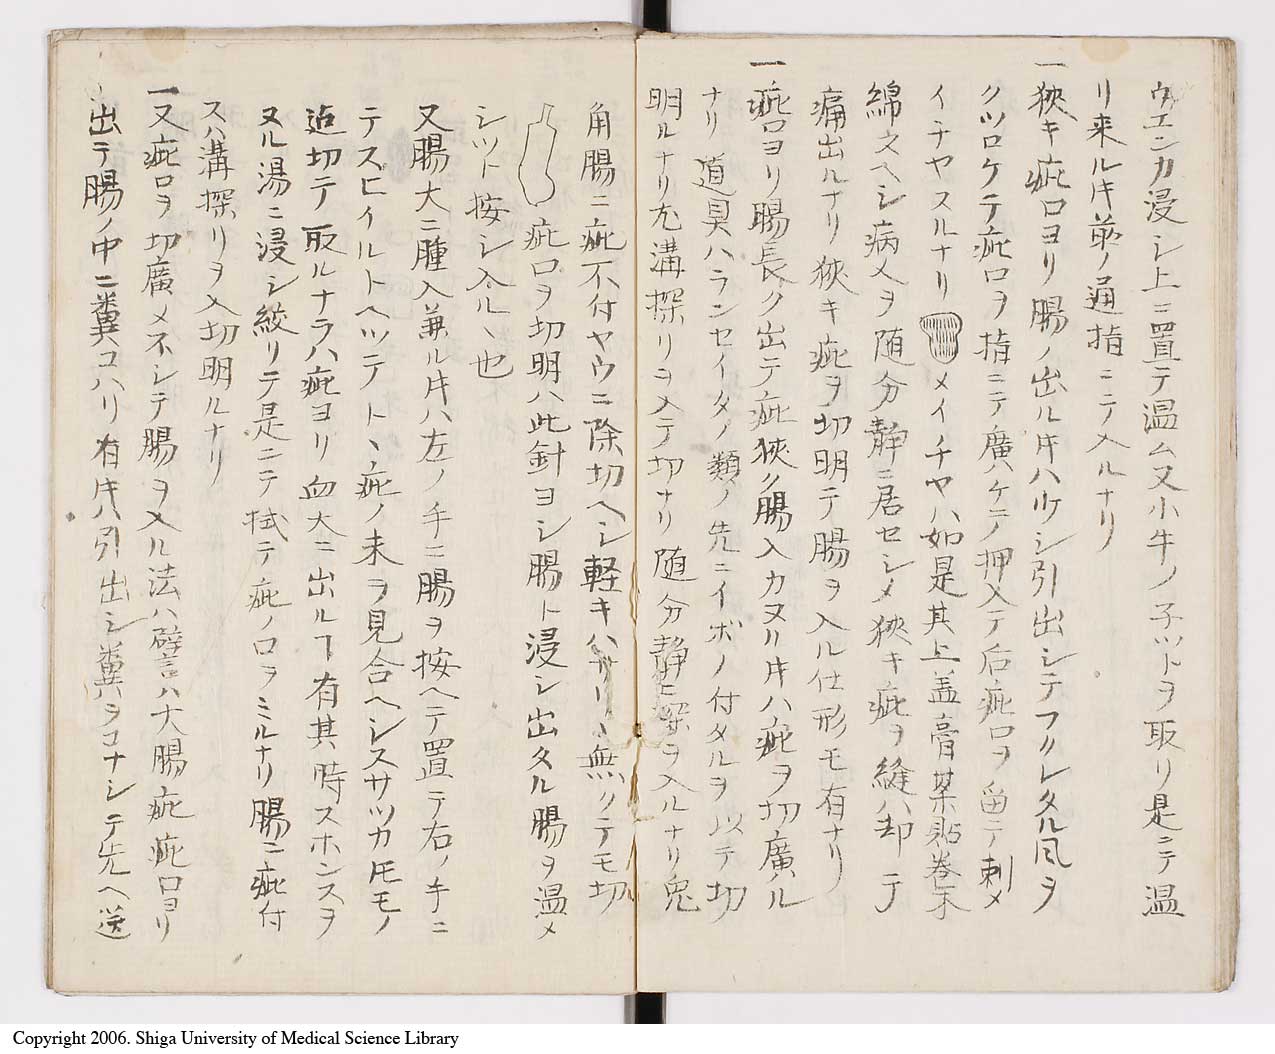 ウエンカ浸シ上ニ置テ温ム又小牛ノ子ツトヲ取リ是ニテ温
リ来ル𪜈前ノ通指ニテ入ルナリ
一狹キ疵口ヨリ腸ノ出ル𪜈ハ シ引出シテフクレタル風ヲ
クツロケテ疵口ヲ指ニテ廣ケテ押入テ后疵口ヲ留テ刺メ
イチヤスルナリ メイチヤハ如是其上盖膏薬貼巻木
綿文ヘシ病人ヲ随分静ニ居セシメ狹キ疵ヲ縫ハ却テ
痛出ルナリ狹キ疵ヲ切明テ腸ヲ入ル仕形モ有ナリ
一疵口ヨリ腸長ク出テ疵狹ク腸入カヌル𪜈ハ疵ヲ切廣ル
ナリ道具ハランセイタノ類ノ先ニイボノ付タルヲ以テ切
明ルナリ尤溝探リヲ入テ切ナリ随分静ニ探ヲ入ルナリ兎
角腸ニ疵不付ヤウニ除切ヘシ軽キハサリ 無クテモ切
疵口ヲ切明ハ此針ヨシ腸ト浸シ出タル腸ヲ温メ
シツト按シ入ル丶也
又腸大ニ腫入兼ル𪜈ハ左ノ手ニ腸ヲ按ヘテ置テ右ノ手ニ
テスヒイルトヘツテト丶疵ノ未ヲ見合ヘシスサツカ𪜈モノ
迠切テ取ルナラハ疵ヨリ血大ニ出ルヿ有其時スホンスヲ
ヌル湯ニ浸シ絞リテ是ニテ拭テ疵ノ口ヲミルナリ腸ニ疵付
スハ溝探リヲ入切明ルナリ
一又疵口ヲ切廣メ不シテ腸ヲ入ル法ハ譬ハ大腸疵疵口ヨリ
出テ腸ノ中ニ糞コハリ有𪜈ハ引出シ糞ヲコナシテ先ヘ送
Copyright 2006. Shiga University of Medical Science Library